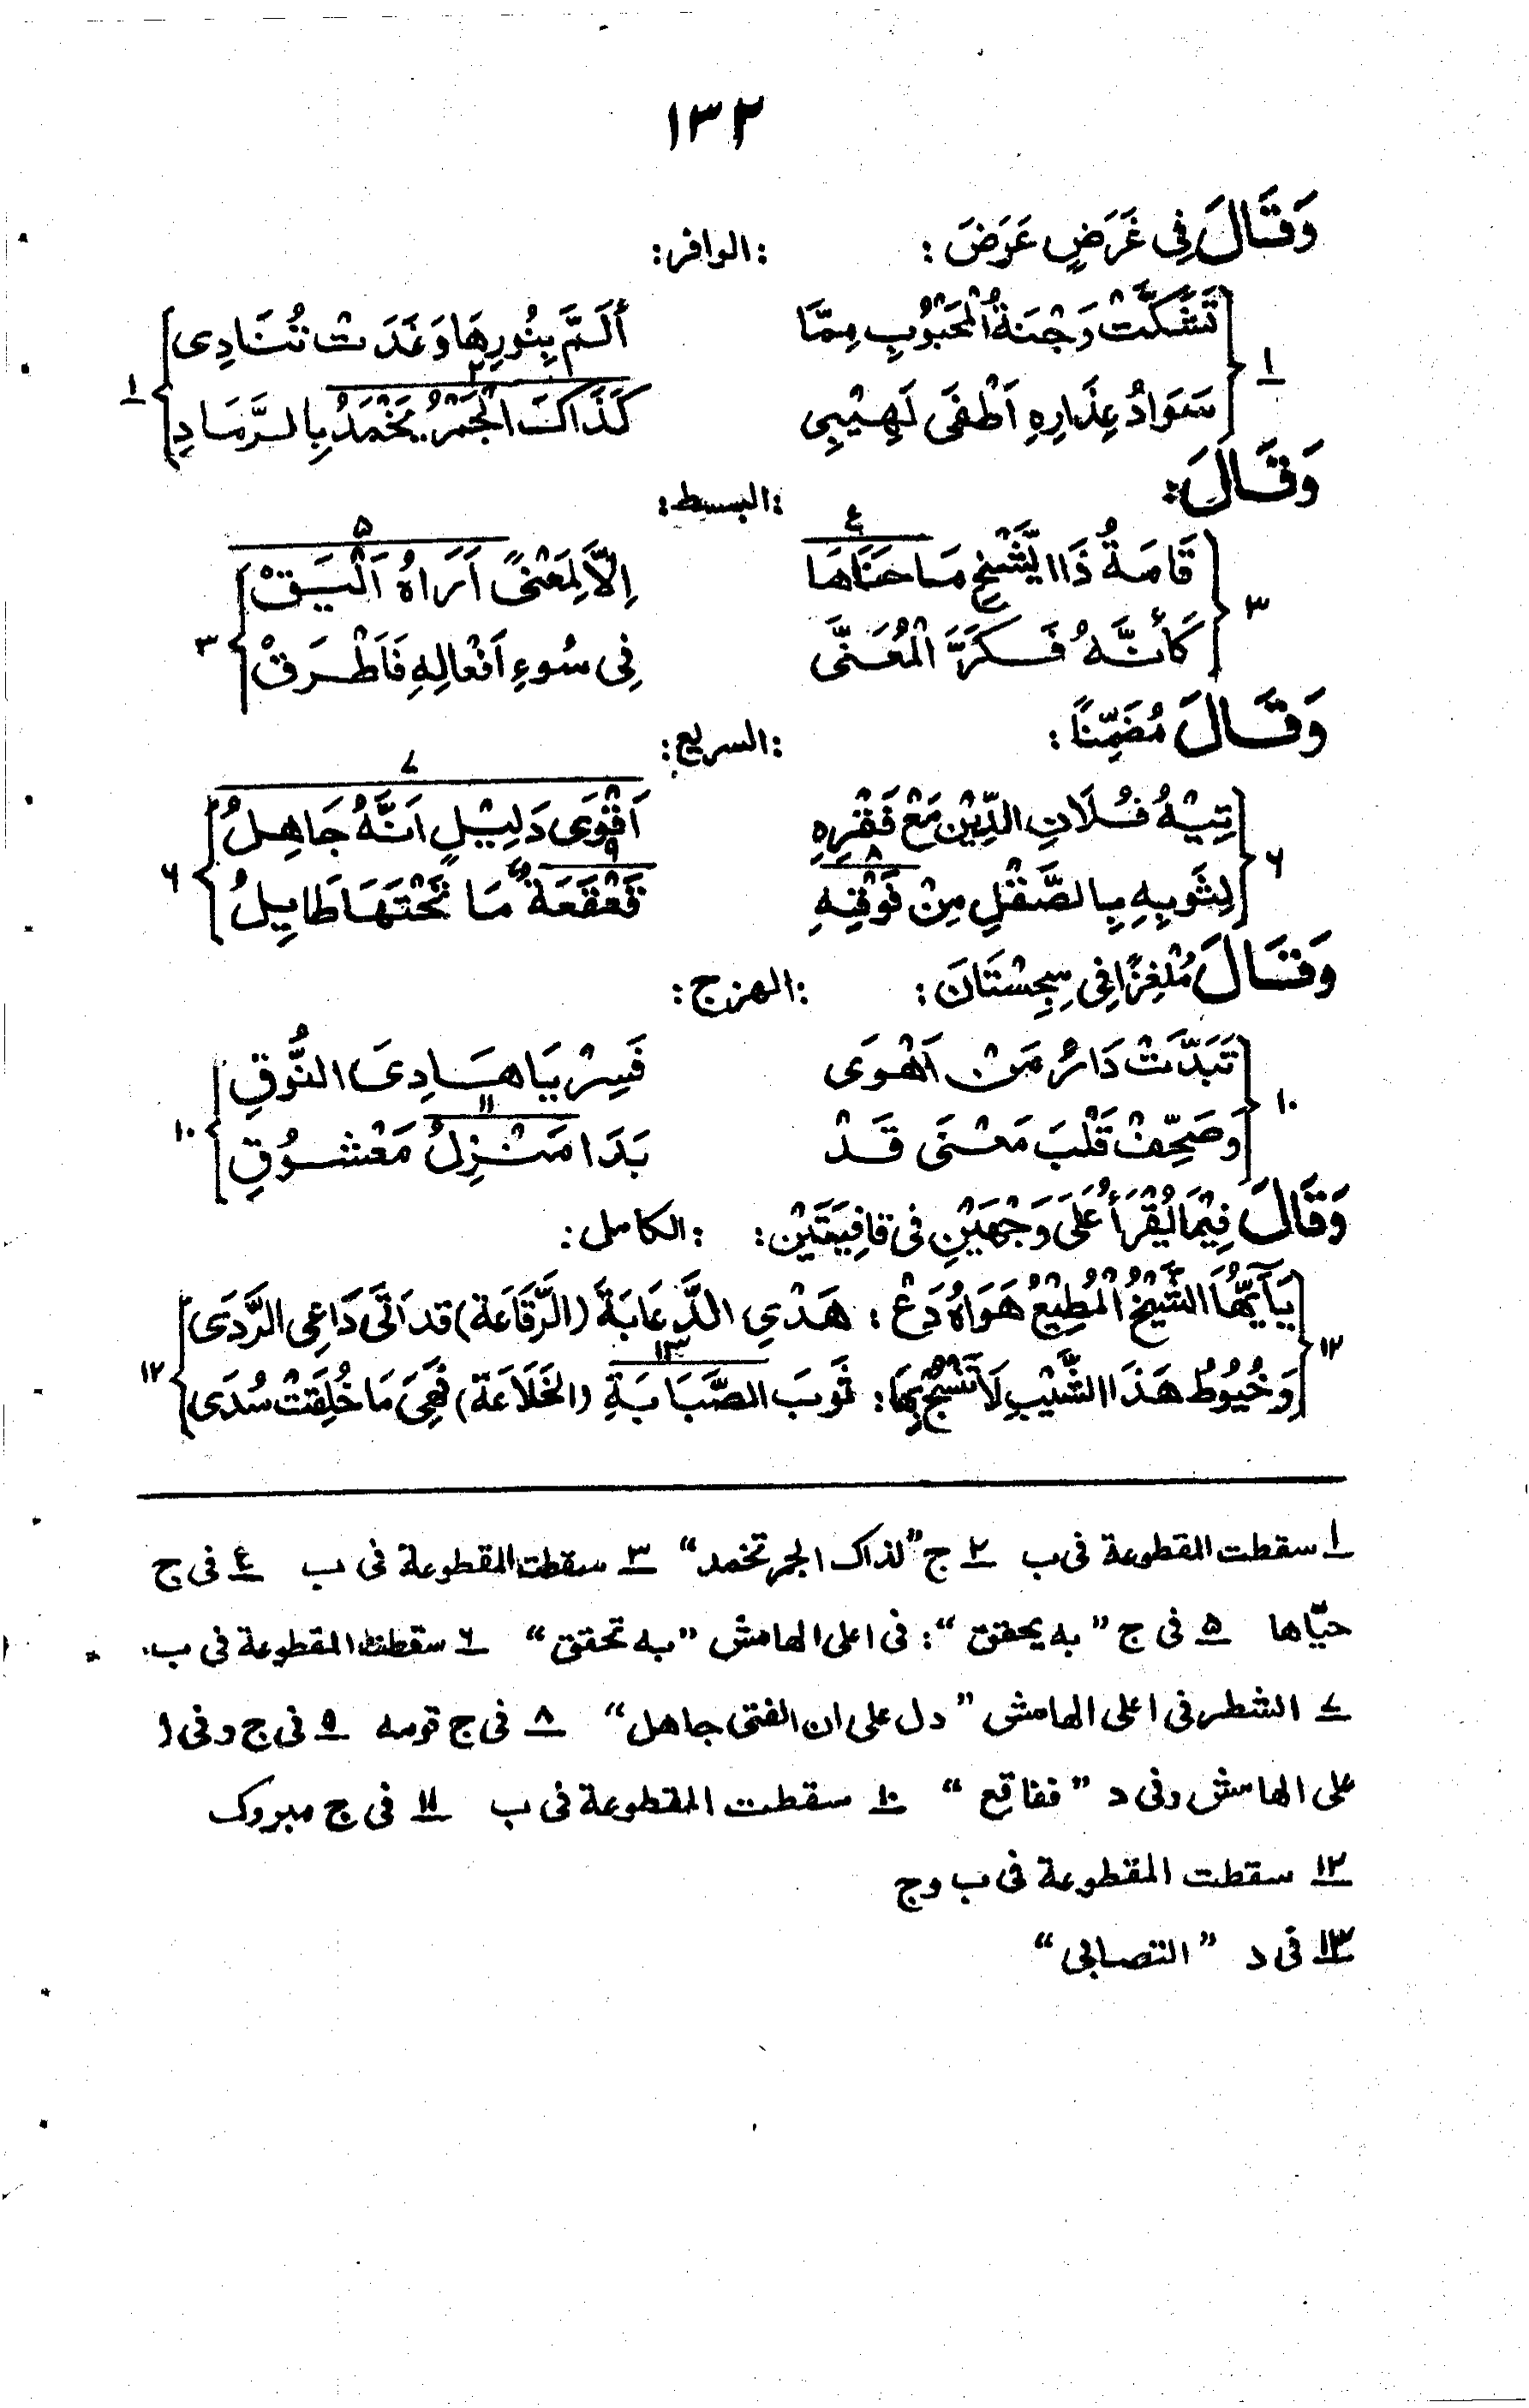 ١٣٢
وَقَالَ فِى غَرَضٍ عَرَضَ : :الوافر:
١ تَشَكَّتْ وَجْنَةُ الْمَحْبُوْبِ مِمَّا أَلَمَّ بِنُورِهَا وَغَدَتْ تُنَادِى ١
سَوَادُ عِذَارِهِ اَطْفَى لَهِيْبِى ٢ كَذَاكَ الْجَمْرُ يَخْمَدُ بِالرَّمَادِ
وَقَالَ: :البسيط:
٣ قَامَةُ ذَا الشَّيْخِ مَا حَنَاهَا ٤ اِلَّا لِمَعْنًى اَرَاهُ اَلْيَقْ ٥ ٣
كَأَنَّهُ فَكَّرَ الْمُعَنَّى فِى سُوءِ اَفْعَالِهِ فَاَطْرَقْ
وَقَالَ مُضَمِّنًا : :السريع:
٦ تِيْهُ فُلَانِ الدِّيْنِ مَعْ فَقْرِهِ اَقْوَى دَلِيْلٍ اَنَّهُ جَاهِلُ ٧ ٦
لِثَوبِهِ بِالصَّقْلِ مِنْ فَوْقِهِ ٨ قَعْقَعَةٌ ٩ مَا تَحْتَهَا طَايِلُ
وَقَالَ مُلْغِزًا فِى سِجِسْتَانَ : :الهزج:
١٠ تَبَدَّتْ دَارُ مَنْ اَهْوَى فَسِرْ يَا هَادِىَ النُّوقِ ١٠
وَصَحِّفْ قَلْبَ مَعْنَى قَدْ بَدَا مَنْزِلُ ١١ مَعْشُوْقِ
وَقَالَ فِيْمَا يُقْرَأُ عَلَى وَجْهَيْنِ فى قَافِيَتَيْن: :الكامل:
١٢ يَآ اَيُّهَا الشَّيْخُ الْمُطِيْعُ هَوَاهُ دَعْ : هَذِى الدَّعَابَةَ (الرَّقَاعَة) قد اَتَى دَاعِى الرَّدَى ١٢
وَخُيُوْطُ هَذَا الشَّيْبِ لَا تَنْسُجْ بِهَا: ثَوبَ الصَّبَابَةِ ١٣ (الخَلَاعَة) فَهِىَ مَا خُلِقَتْ سُدَى
١ سقطت المقطوعة فى ب ٢ ج "لذاك الجمر تخمد" ٣ سقطت المقطوعة فى ب ٤ فى ج
حيّاها ٥ فى ج "به يحقق" : فى اعلى الهامش "به تحقق" ٦ سقطت المقطوعة فى ب.
٧ الشطر فى اعلى الهامش "دل على ان الفتى جاهل" ٨ فى ج قومه ٩ فى ج و فى ا
على الهامش وفى د "فقاقع" ١٠ سقطت المقطوعة فى ب ١١ فى ج مبروك
١٢ سقطت المقطوعة فى ب و ج
١٣ فى د "التصابى"